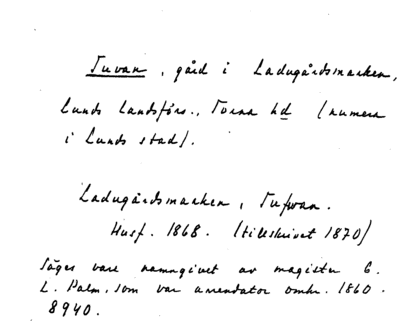 Tuvan, gård i Ladugårdsmarken,
Lunds landsförs., Torna hd (numera
i Lunds stad).
Ladugårdsmarken, Tufvan.
Husf. 1868. (tillskrivet 1870)
Säges vara namngivet av magister C.
L. Palm, som var arrendator omkr. 1860.
8940.